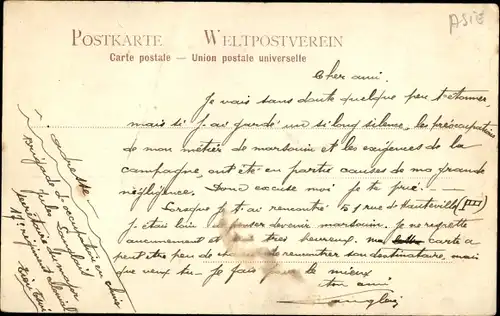 ASIE
POSTKARTE WELTPOSTVEREIN
Carte postale — Union postale universelle
Cher ami.
Je vais sans doute quelque peu t'étonner
mais si j'ai gardé un si long silence, les préoccupations
de mon métier de marsouin et les exigences de la
campagne, ont été en partie causes de ma grande
négligence. Donc excuse moi je te prie.
Lorsque je t'ai rencontré 51 rue de Hauteville (III)
j'étais loin de devenir marsouin. Je ne regrette
aucunement et très heureux. ma carte a
peut être peu de rencontrer son destinataire, mais
que veux tu. Je fais pour le mieux
ton ami
Brigade d'occupation en Chine
Secrétaire du major